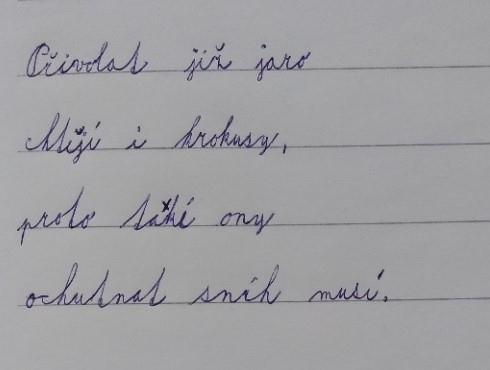 Přivolat již jaro
chtějí i krokusy,
proto také ony
ochutnat sníh musí.